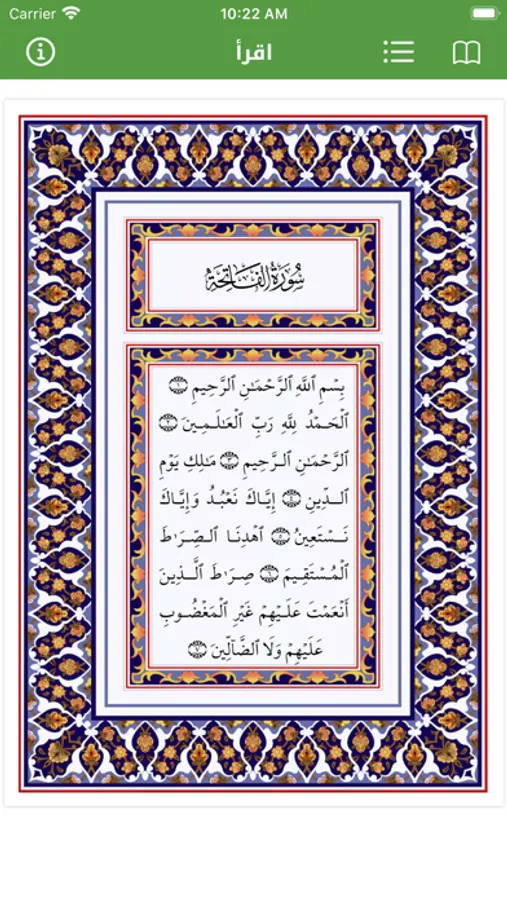 Carrier 10:22 AM
اقرأ
سُورَةُ الفَاتِحَةِ
بِسْمِ ٱللَّهِ ٱلرَّحْمَٰنِ ٱلرَّحِيمِ ١
ٱلْحَمْدُ لِلَّهِ رَبِّ ٱلْعَٰلَمِينَ ٢
ٱلرَّحْمَٰنِ ٱلرَّحِيمِ ٣ مَٰلِكِ يَوْمِ
ٱلدِّينِ ٤ إِيَّاكَ نَعْبُدُ وَإِيَّاكَ
نَسْتَعِينُ ٥ ٱهْدِنَا ٱلصِّرَٰطَ
ٱلْمُسْتَقِيمَ ٦ صِرَٰطَ ٱلَّذِينَ
أَنْعَمْتَ عَلَيْهِمْ غَيْرِ ٱلْمَغْضُوبِ
عَلَيْهِمْ وَلَا ٱلضَّآلِّينَ ٧